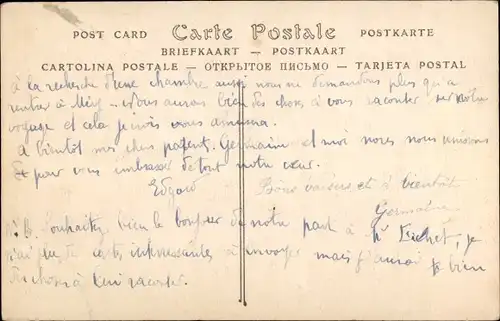 POST CARD — Carte Postale — POSTKARTE
BRIEFKAART — POSTKAART
CARTOLINA POSTALE — ОТКРЫТОЕ ПИСЬМО — TARJETA POSTAL
à la recherche d'une chambre aussi nous ne demandons plus qu'a
rentrer à — Nous aurons bien des choses à vous raconter sur notre
voyage et cela je vous amusera
à bientôt mes chers parents. Germaine et moi nous nous unissons
Et pour vous embrasser de tout notre cœur.
Edgard
Bons baisers et à bientôt
Germaine
N.B. Souhaitez bien le bonjour de notre part à Mr je
n'ai plus de cartes interessantes à envoyer mais j'aurai bien
des choses à lui raconter.